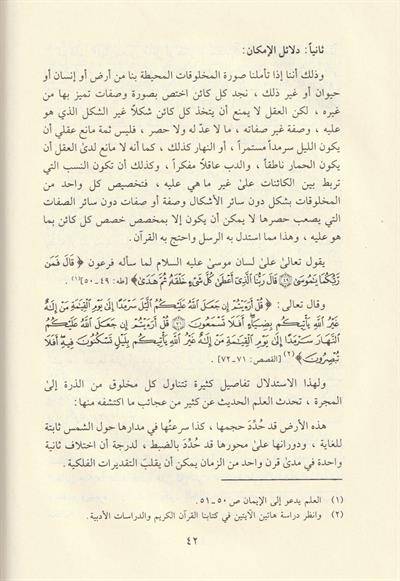 ثانياً: دلائل الإمكان:
وذلك أننا إذا تأملنا صورة المخلوقات المحيطة بنا من أرض أو إنسان أو
حيوان أو غير ذلك، نجد كل كائن اختص بصورة وصفات تميز بها من
غيره، لكن العقل لا يمنع أن يتخذ كل كائن شكلاً غير الشكل الذي هو
عليه، وصفة غير صفاته، ما لا عدّ له ولا حصر، فليس ثمة مانع عقلي أن
يكون الليل سرمداً مستمراً، أو النهار كذلك، كما أنه لا مانع لدىٰ العقل أن
يكون الحمار ناطقاً، والدب عاقلاً مفكراً، وكذلك أن تكون النسب التي
تربط بين الكائنات علىٰ غير ما هي عليه، فتخصيص كل واحد من
المخلوقات بشكل دون سائر الأشكال وصفة أو صفات دون سائر الصفات
التي يصعب حصرها لا يمكن أن يكون إلا بمخصص خصص كل كائن بما
هو عليه، وهذا مما استدل به الرسل واحتج به القرآن.
يقول تعالىٰ علىٰ لسان موسىٰ عليه السلام لما سأله فرعون ﴿ قَالَ فَمَن
رَّبُّكُمَا يَٰمُوسَىٰ ﴿٤٩﴾ قَالَ رَبُّنَا ٱلَّذِىٓ أَعْطَىٰ كُلَّ شَىْءٍ خَلْقَهُۥ ثُمَّ هَدَىٰ﴾ [طه: ٤٩ـ٥٠](١).
وقال تعالىٰ: ﴿ قُلْ أَرَءَيْتُمْ إِن جَعَلَ ٱللَّهُ عَلَيْكُمُ ٱلَّيْلَ سَرْمَدًا إِلَىٰ يَوْمِ ٱلْقِيَٰمَةِ مَنْ إِلَٰهٌ
غَيْرُ ٱللَّهِ يَأْتِيكُم بِضِيَآءٍ أَفَلَا تَسْمَعُونَ ﴿٧١﴾ قُلْ أَرَءَيْتُمْ إِن جَعَلَ ٱللَّهُ عَلَيْكُمُ
ٱلنَّهَارَ سَرْمَدًا إِلَىٰ يَوْمِ ٱلْقِيَٰمَةِ مَنْ إِلَٰهٌ غَيْرُ ٱللَّهِ يَأْتِيكُم بِلَيْلٍ تَسْكُنُونَ فِيهِ أَفَلَا
تُبْصِرُونَ﴾(٢) [القصص: ٧١ـ٧٢].
ولهذا الاستدلال تفاصيل كثيرة تتناول كل مخلوق من الذرة إلىٰ
المجرة، تحدث العلم الحديث عن كثير من عجائب ما اكتشفه منها:
هذه الأرض قد حُدِّدَ حجمها، كذا سرعتُها في مدارها حول الشمس ثابتة
للغاية، ودورانها علىٰ محورها قد حُدِّدَ بالضبط، لدرجة أن اختلاف ثانية
واحدة في مدىٰ قرن واحد من الزمان يمكن أن يقلبَ التقديرات الفلكية.
(١) العلم يدعو إلى الإيمان ص ٥٠ـ٥١.
(٢) وانظر دراسة هاتين الآيتين في كتابنا القرآن الكريم والدراسات الأدبية.
٤٢